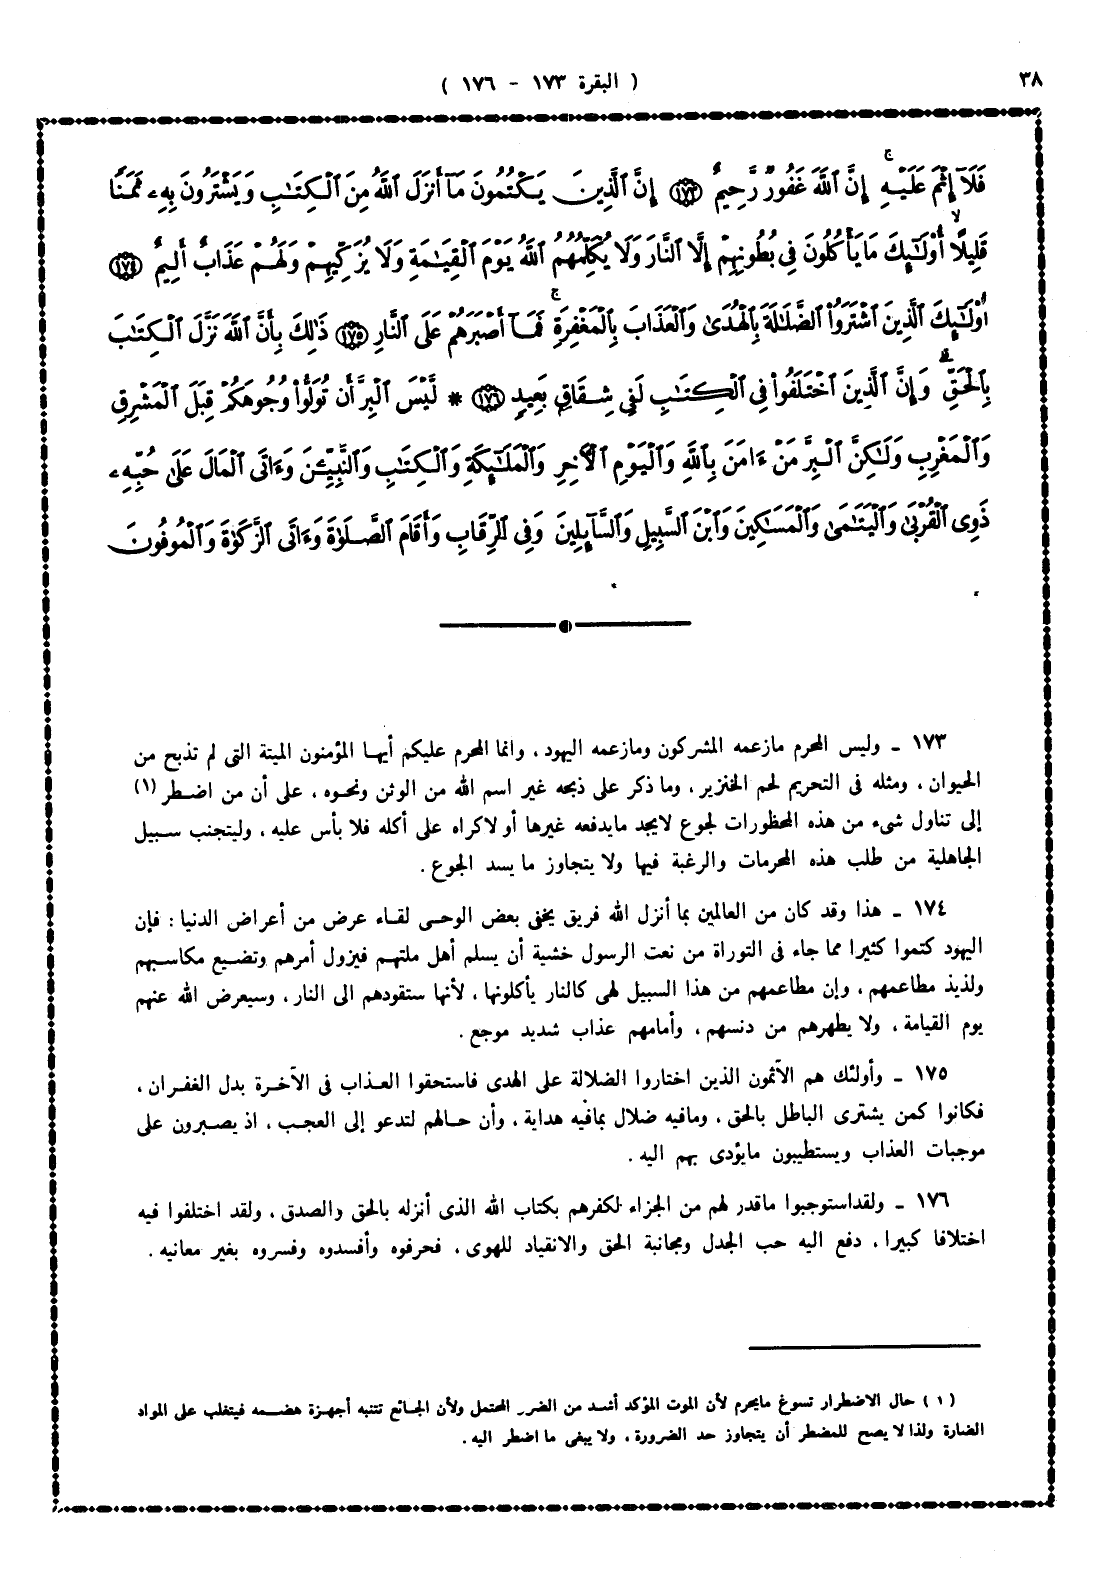 ٣٨
( البقرة ١٧٣ - ١٧٦ )
فَلَآ إِثْمَ عَلَيْهِ ۚ إِنَّ ٱللَّهَ غَفُورٌ رَّحِيمٌ ﴿١٧٣﴾ إِنَّ ٱلَّذِينَ يَكْتُمُونَ مَآ أَنزَلَ ٱللَّهُ مِنَ ٱلْكِتَٰبِ وَيَشْتَرُونَ بِهِۦ ثَمَنًا
قَلِيلًا ۙ أُوْلَٰٓئِكَ مَا يَأْكُلُونَ فِى بُطُونِهِمْ إِلَّا ٱلنَّارَ وَلَا يُكَلِّمُهُمُ ٱللَّهُ يَوْمَ ٱلْقِيَٰمَةِ وَلَا يُزَكِّيهِمْ وَلَهُمْ عَذَابٌ أَلِيمٌ ﴿١٧٤﴾
أُوْلَٰٓئِكَ ٱلَّذِينَ ٱشْتَرَوُاْ ٱلضَّلَٰلَةَ بِٱلْهُدَىٰ وَٱلْعَذَابَ بِٱلْمَغْفِرَةِ ۚ فَمَآ أَصْبَرَهُمْ عَلَى ٱلنَّارِ ﴿١٧٥﴾ ذَٰلِكَ بِأَنَّ ٱللَّهَ نَزَّلَ ٱلْكِتَٰبَ
بِٱلْحَقِّ ۗ وَإِنَّ ٱلَّذِينَ ٱخْتَلَفُواْ فِى ٱلْكِتَٰبِ لَفِى شِقَاقٍۭ بَعِيدٍ ﴿١٧٦﴾ * لَّيْسَ ٱلْبِرَّ أَن تُوَلُّواْ وُجُوهَكُمْ قِبَلَ ٱلْمَشْرِقِ
وَٱلْمَغْرِبِ وَلَٰكِنَّ ٱلْبِرَّ مَنْ ءَامَنَ بِٱللَّهِ وَٱلْيَوْمِ ٱلْءَاخِرِ وَٱلْمَلَٰٓئِكَةِ وَٱلْكِتَٰبِ وَٱلنَّبِيِّـۧنَ وَءَاتَى ٱلْمَالَ عَلَىٰ حُبِّهِۦ
ذَوِى ٱلْقُرْبَىٰ وَٱلْيَتَٰمَىٰ وَٱلْمَسَٰكِينَ وَٱبْنَ ٱلسَّبِيلِ وَٱلسَّآئِلِينَ وَفِى ٱلرِّقَابِ وَأَقَامَ ٱلصَّلَوٰةَ وَءَاتَى ٱلزَّكَوٰةَ وَٱلْمُوفُونَ
١٧٣ ـ وليس المحرم مازعمه المشركون ومازعمه اليهود ، وانما المحرم عليكم أيها المؤمنون الميتة التى لم تذبح من
الحيوان ، ومثله فى التحريم لحم الخنزير ، وما ذكر على ذبحه غير اسم الله من الوثن ونحوه ، على أن من اضطر (١)
إلى تناول شىء من هذه المحظورات لجوع لايجد مايدفعه غيرها أو لاكراه على أكله فلا بأس عليه ، وليتجنب سبيل
الجاهلية من طلب هذه المحرمات والرغبة فيها ولا يتجاوز ما يسد الجوع .
١٧٤ ـ هذا وقد كان من العالمين بما أنزل الله فريق يخفى بعض الوحى لقاء عرض من أعراض الدنيا : فإن
اليهود كتموا كثيرا مما جاء فى التوراة من نعت الرسول خشية أن يسلم أهل ملتهم فيزول أمرهم وتضيع مكاسبهم
ولذيذ مطاعمهم ، وإن مطاعمهم من هذا السبيل لهى كالنار يأكلونها ، لأنها ستقودهم الى النار ، وسيعرض الله عنهم
يوم القيامة ، ولا يطهرهم من دنسهم ، وأمامهم عذاب شديد موجع .
١٧٥ ـ وأولئك هم الآثمون الذين اختاروا الضلالة على الهدى فاستحقوا العذاب فى الآخرة بدل الغفران ،
فكانوا كمن يشترى الباطل بالحق ، ومافيه ضلال بمافيه هداية ، وأن حالهم لتدعو إلى العجب ، اذ يصبرون على
موجبات العذاب ويستطيبون مايؤدى بهم اليه .
١٧٦ ـ ولقداستوجبوا ماقدر لهم من الجزاء لكفرهم بكتاب الله الذى أنزله بالحق والصدق ، ولقد اختلفوا فيه
اختلافا كبيرا ، دفع اليه حب الجدل ومجانبة الحق والانقياد للهوى ، فحرفوه وأفسدوه وفسروه بغير معانيه .
(١) حال الاضطرار تسوغ مايحرم لأن الموت المؤكد أشد من الضرر المحتمل ولأن الجائع تتنبه أجهزة هضمه فيتغلب على المواد
الضارة ولذا لا يصح للمضطر أن يتجاوز حد الضرورة ، ولا يبغى ما اضطر اليه .